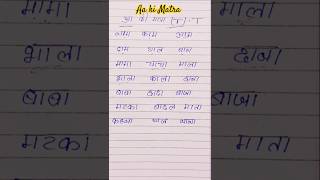 Aa ki Matra
आ की मात्रा (ा) - ा
नाना काम आम
दाम चाल बाल
मामा चाचा माला
भाला काला डाबा
बाबा दादा बाजा
मटका बादल माता
कहना चाल थाना